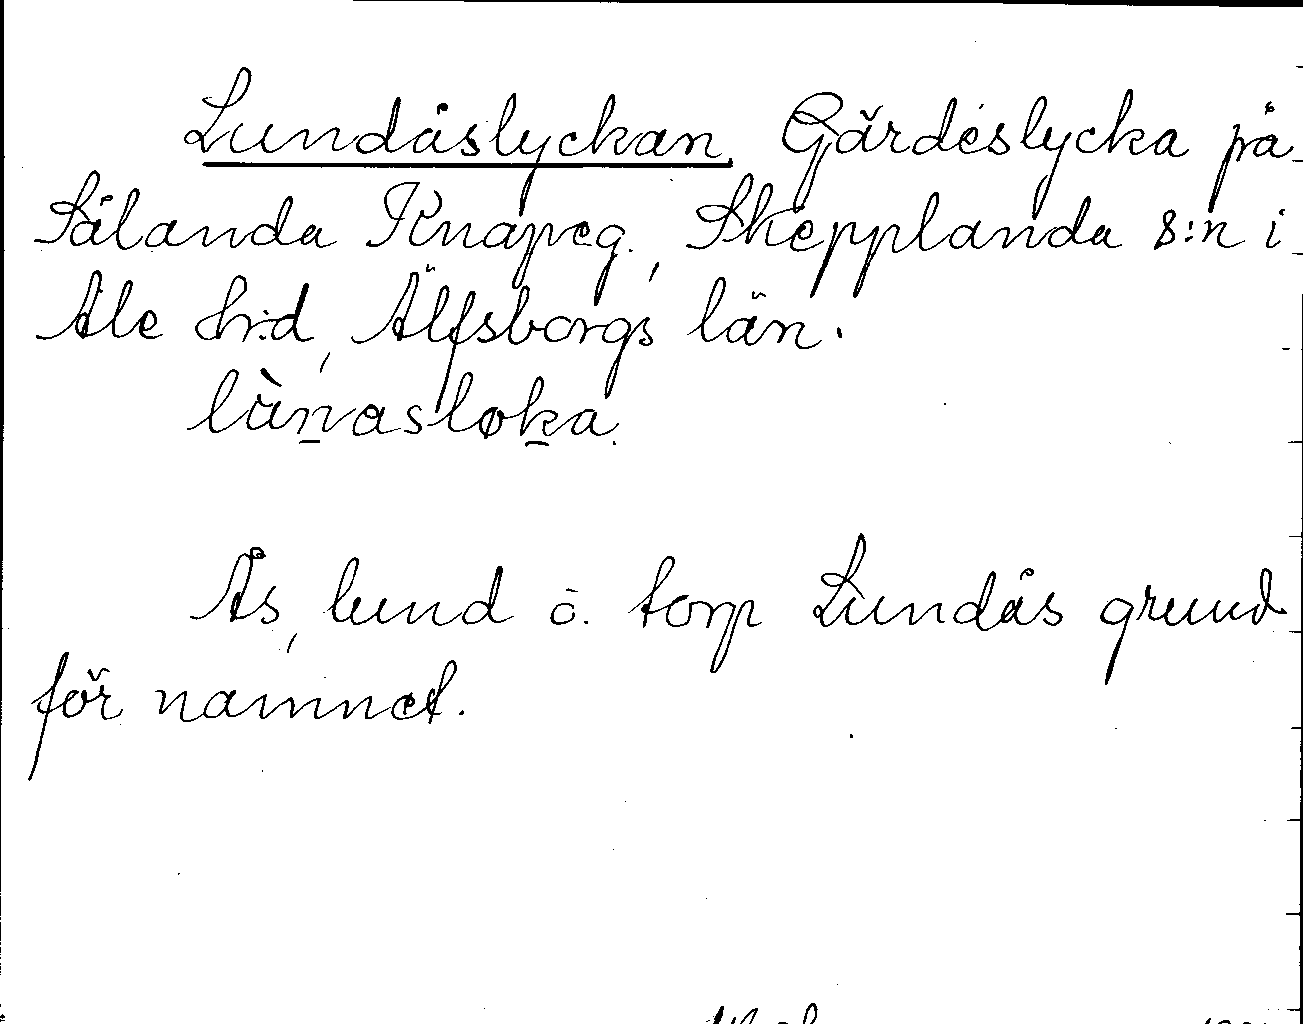 Lundåslyckan, Gärdeslycka på
Sålanda Knapeg., Skepplanda s:n i
Ale hr:d, Älfsborgs län.
lùnasløka.
Ås, lund o. torp Lundås grund
för namnet.